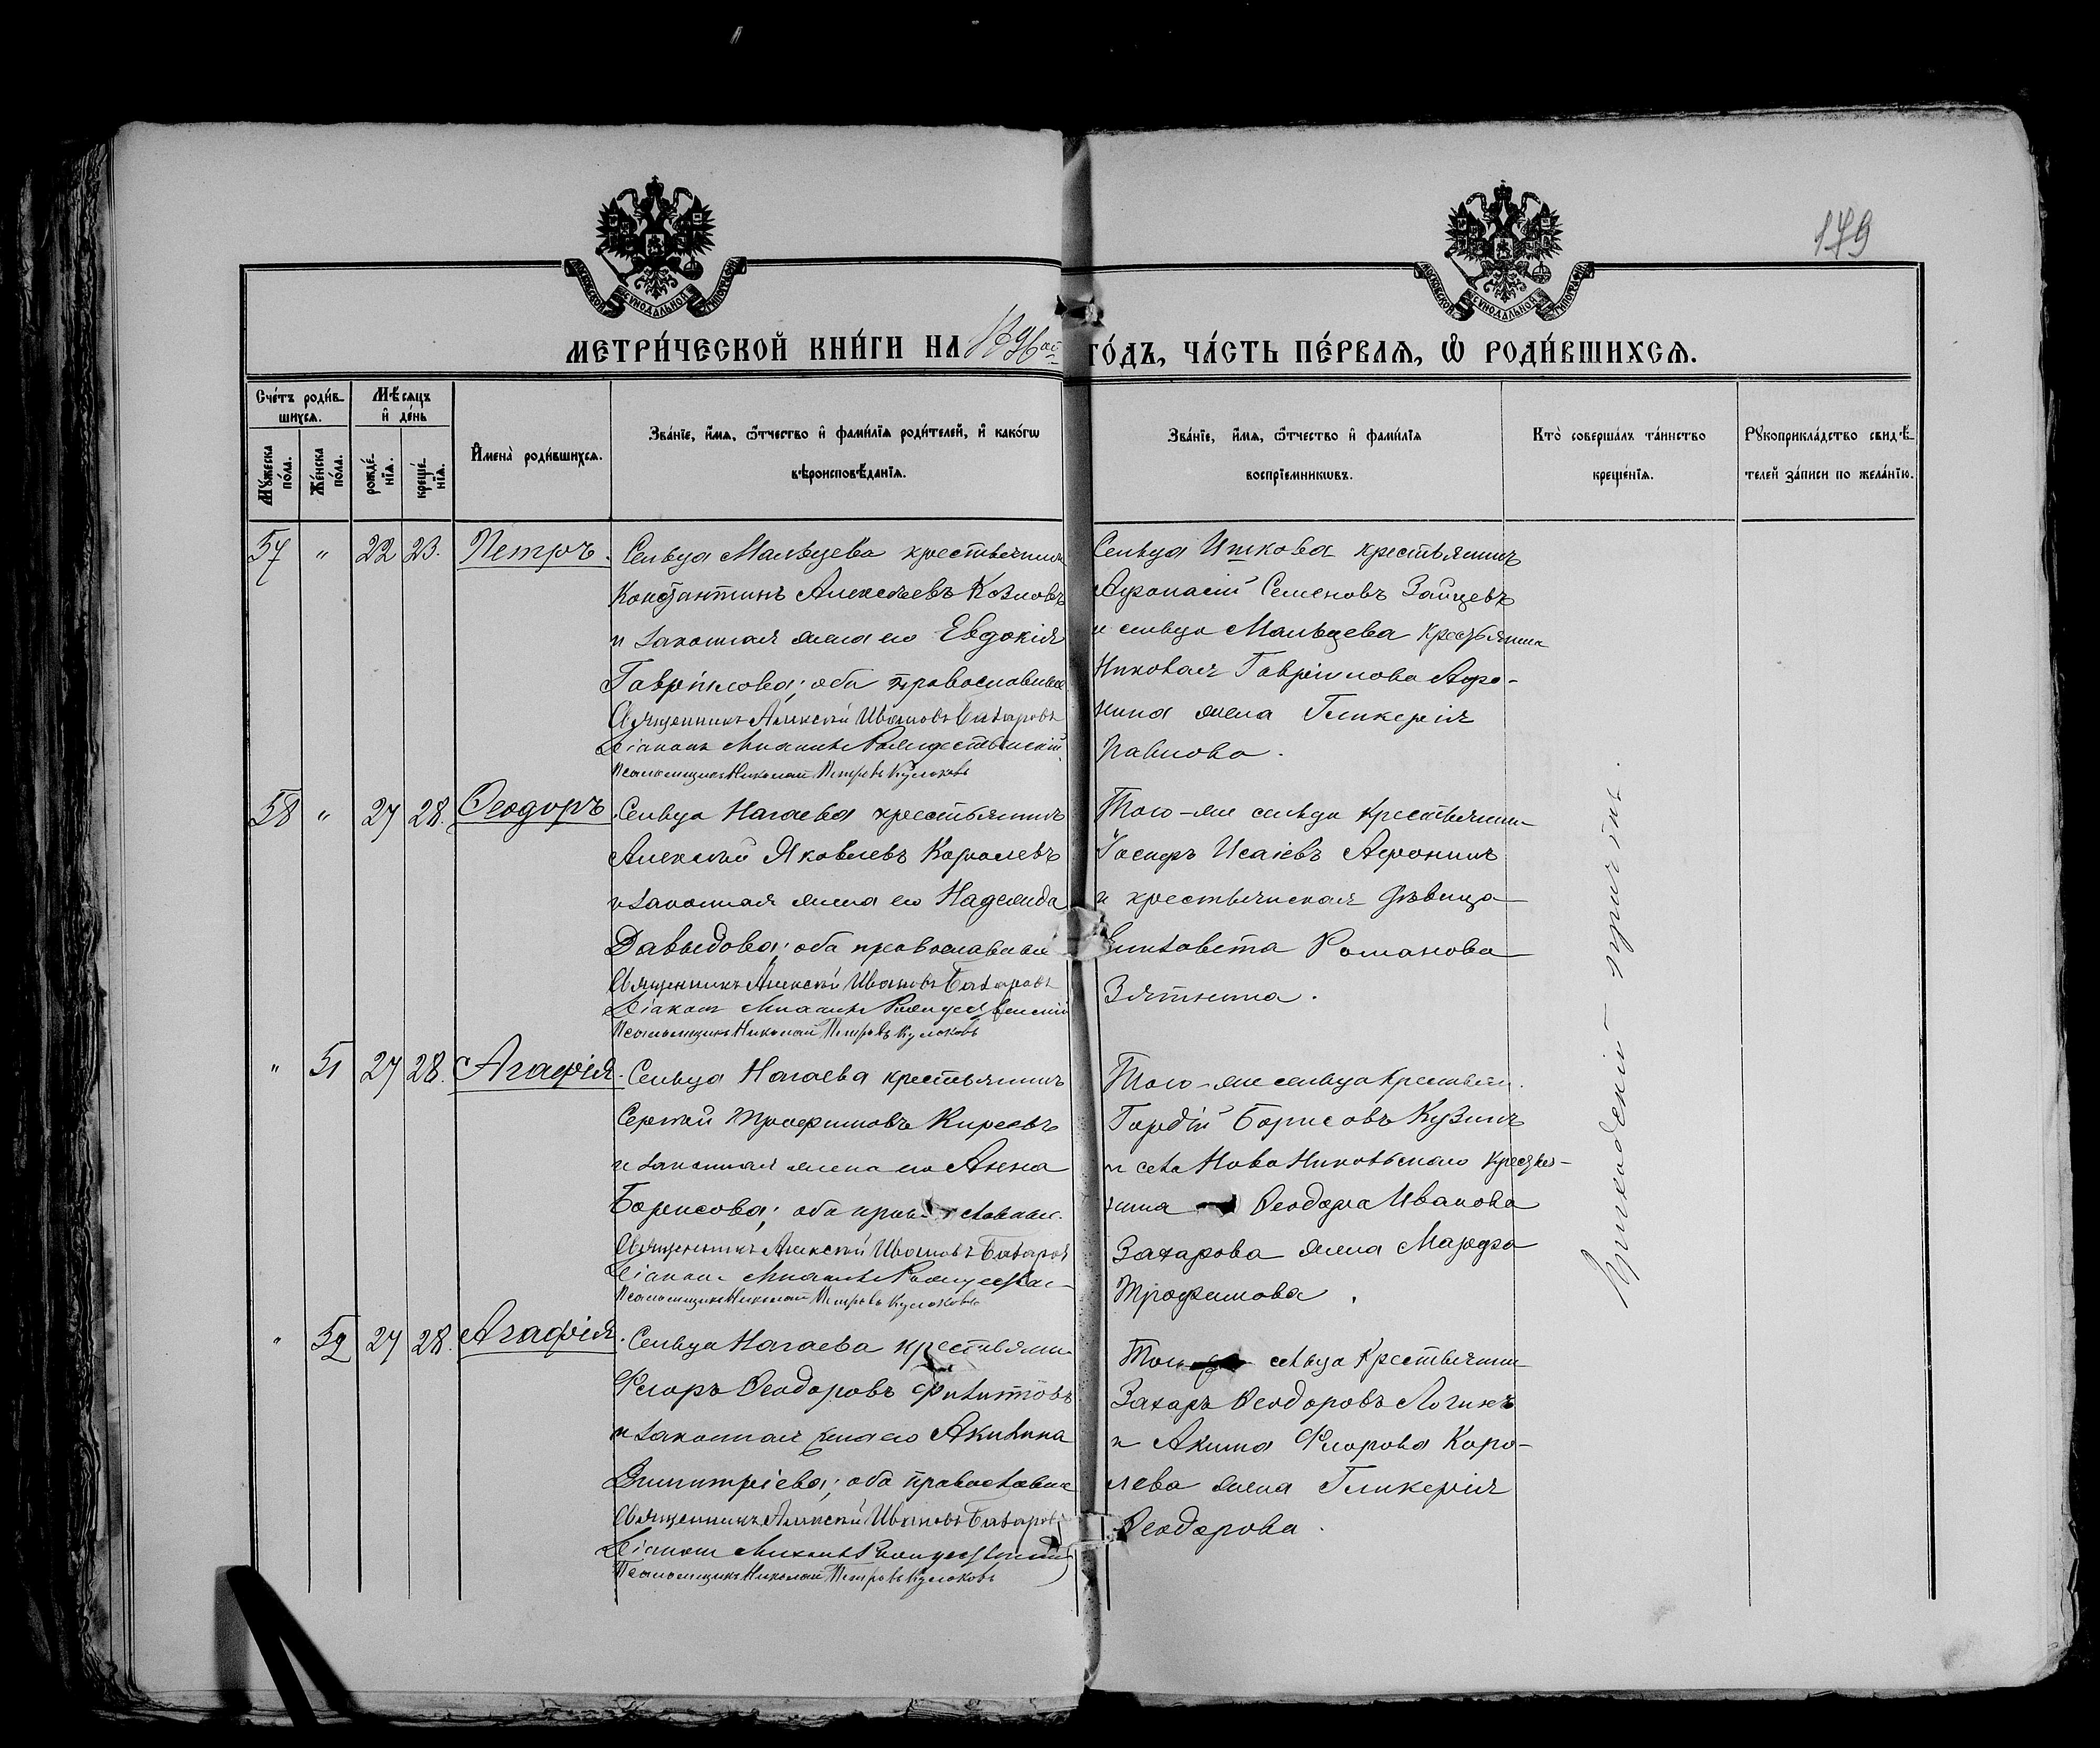 179
МОСКОВСКОЙ СѴНОДАЛЬНОЙ ТИПОГРАФІИ
МОСКОВСКОЙ СѴНОДАЛЬНОЙ ТИПОГРАФІИ
МЕТРИ́ЧЕСКОЙ КНИ́ГИ НА 1896 ой ГО́ДЪ, ЧА́СТЬ ПЕ́РВАЯ, Ѡ҆ РОДИ́ВШИХСЯ.
Сче́тъ роди́в-
шихся.
Мꙋ́жеска по́ла.
Же́нска по́ла.
Мѣ́сяцъ
и҆ де́нь
рожде́-
нїя.
креще́-
нїя.
И҆мена̀ роди́вшихся.
Зва́нїе, и҆́мя, ѻ҆́тчество и҆ фами́лїя роди́телей, и҆ како́гѡ
вѣроисповѣ́данїя.
Зва́нїе, и҆́мя, ѻ҆́тчество и҆ фами́лїя
воспрїемникѡвъ.
Кто̀ соверша́лъ та́инство
креще́нїя.
Рꙋкоприкла́дство свидѣ́-
телей за́писи по жела́нїю.
57 " 22 23. Петръ.
Сельца Мальцева крестьянинъ
Константинъ Алексѣевъ Козловъ
и законная жена его Евдокія
Гаврилова; оба православные
Священникъ Алексѣй Ивановъ
Діаконъ Михаилъ Рождественскій
Псаломщикъ Николай Петровъ Кулаковъ
Сельца крестьянинъ
Афанасій Семеновъ Зайцевъ
и сельца Мальцева крестьянина
Николая Гаврилова Афо-
нина жена Гликерія
Павлова.
58 " 27 28. Ѳеодоръ
Сельца Нагаева крестьянинъ
Алексѣй Яковлевъ Королевъ
и законная жена его Надежда
Давыдова; оба православные
Священникъ Алексѣй Ивановъ
Діаконъ Михаилъ Рождественскій
Псаломщикъ Николай Петровъ Кулаковъ
Того-же сельца крестьянинъ
Іосифъ Исаіевъ Афонинъ
и крестьянская дѣвица
Елизавета Романова
Зятнина.
" 51 27 28. Агафія.
Сельца Нагаева крестьянинъ
Сергѣй Трофимовъ Киреевъ
и законная жена его Анна
Борисова; оба православн.
Священникъ Алексѣй Ивановъ
Діаконъ Михаилъ
Псаломщикъ Николай Петровъ Кулаковъ
Того-же сельца крестьян.
Гордій Борисовъ Кузинъ
и села Ново Никольскаго крестья-
нина Ѳеодора Иванова
Захарова жена Марѳа
Трофимова.
" 52 27 28. Агафія.
Сельца Нагаева крестьянин
Флоръ Ѳеодоровъ Филиповъ
и законная жена его Акилина
Димитріева; оба православные
Священникъ Алексѣй Ивановъ
Діаконъ Михаилъ
Псаломщикъ Николай Петровъ Кулаковъ
Того сельца крестьянин
Захаръ Ѳеодоровъ Логинъ
и Акима Флорова Коро-
лева жена Гликерія
Ѳеодорова.
Приходскій причтъ.